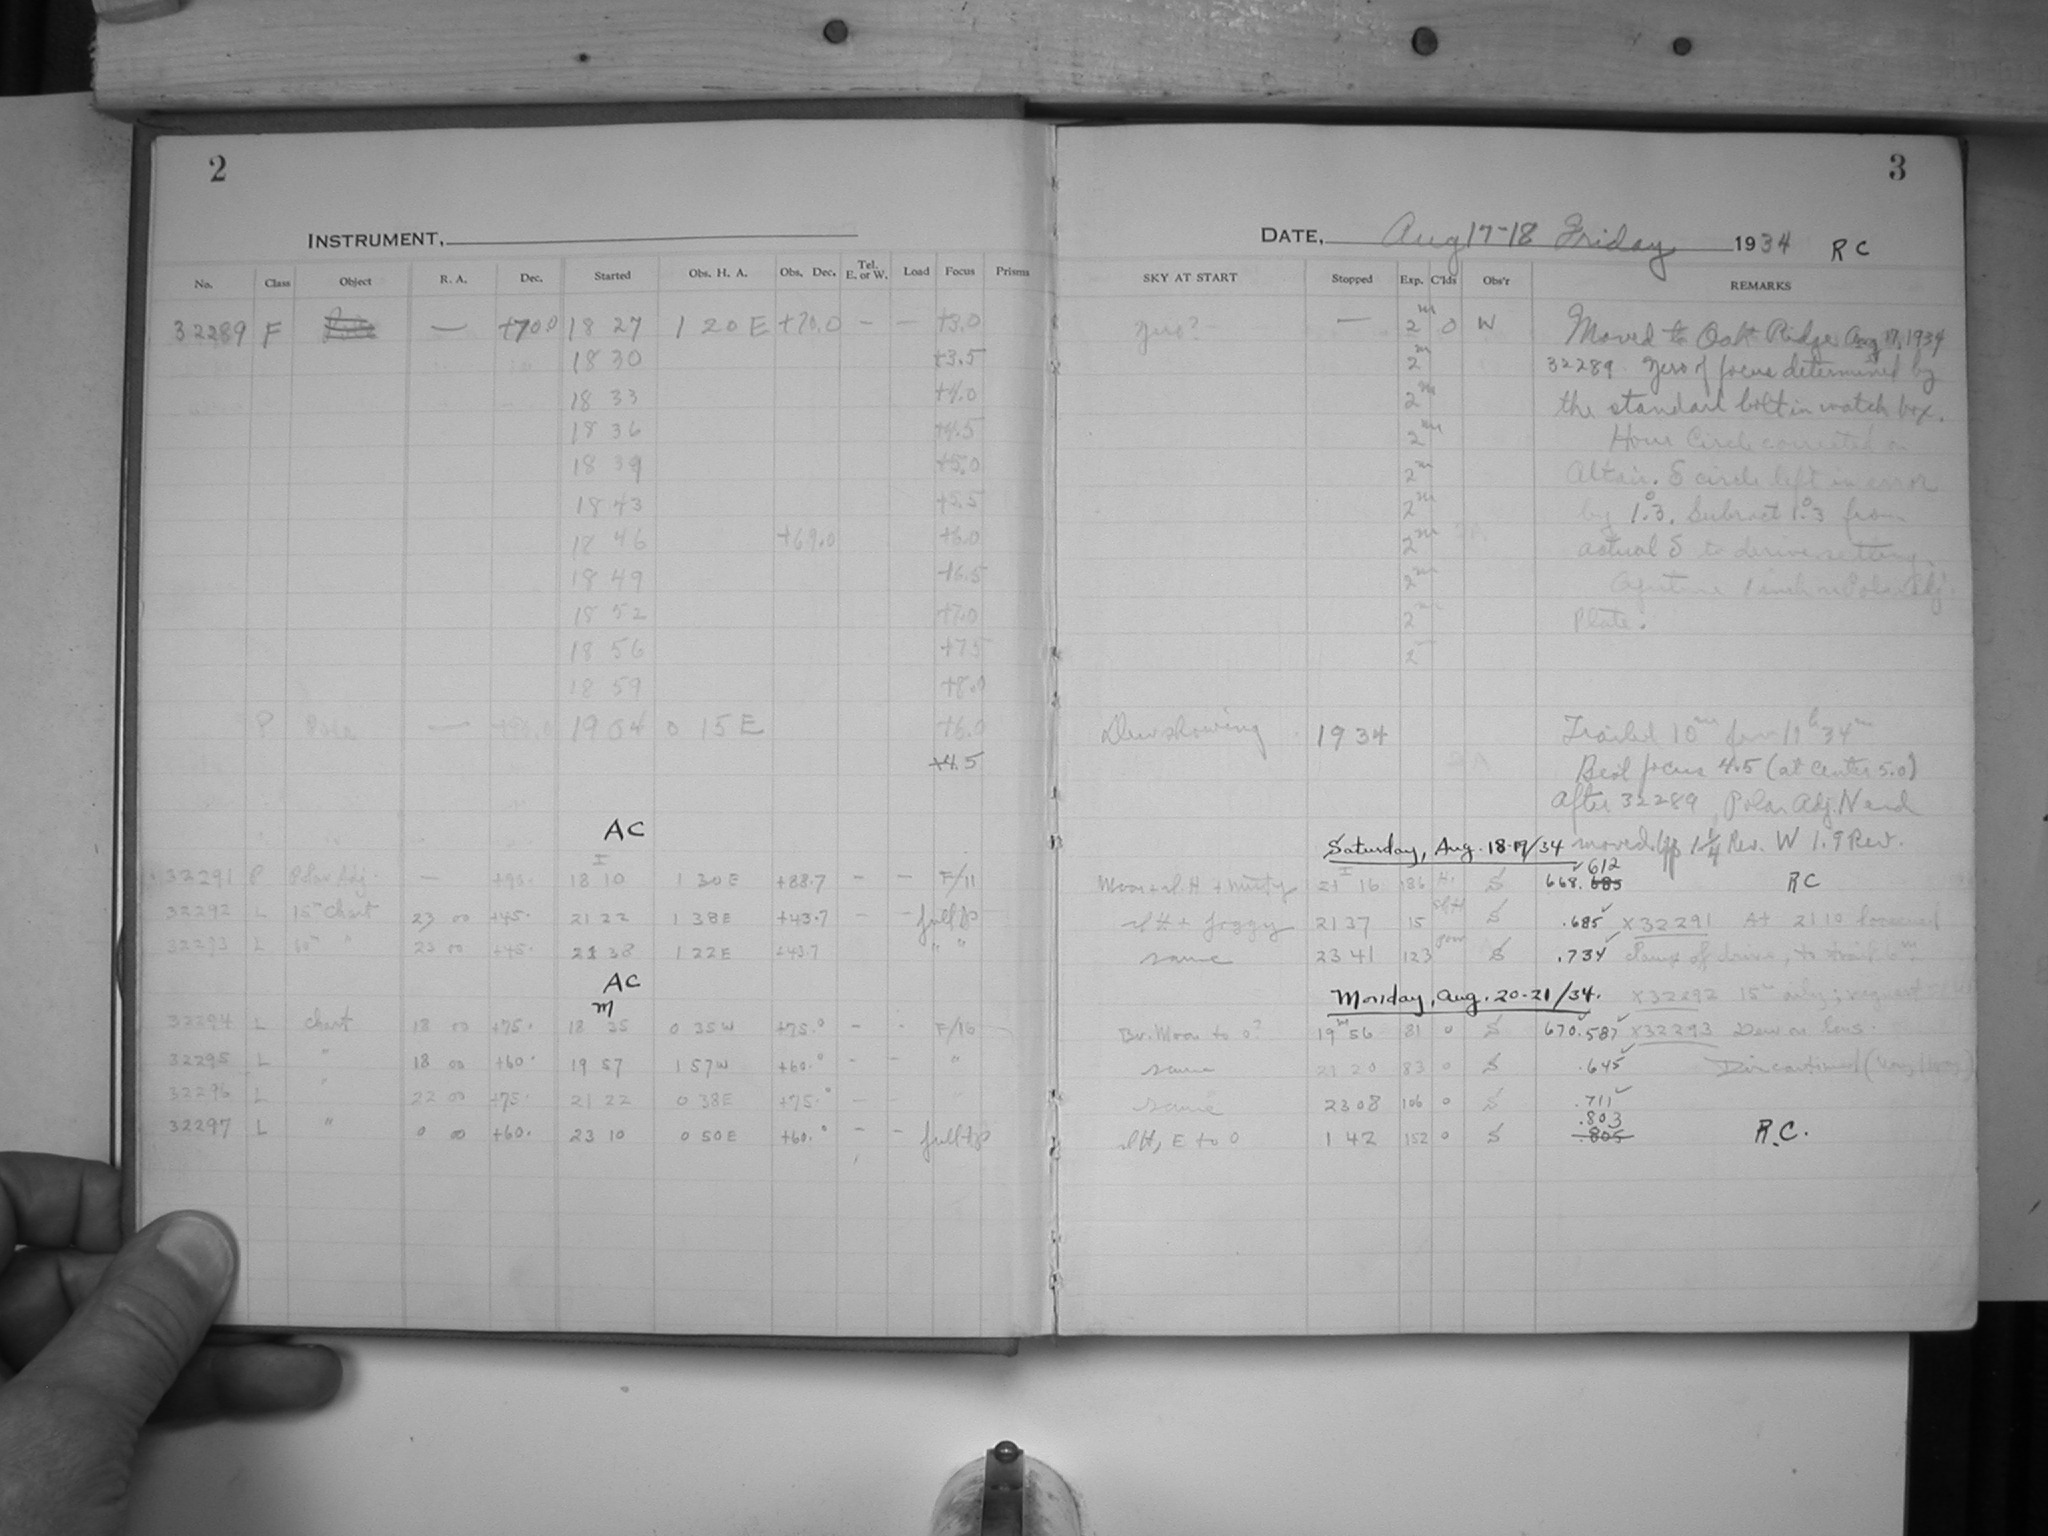 2
INSTRUMENT,
No. Class Object R. A. Dec. Started Obs. H. A. Obs. Dec. Tel. E. or W. Load Focus Prisms
32289 F — +70.0 18 27 1 20 E +70.0 — — +3.0
18 30 +3.5
18 33 +4.0
18 36 +4.5
18 39 +5.0
18 43 +5.5
18 46 +69.0 +6.0
18 49 +6.5
18 52 +7.0
18 56 +7.5
18 59 +8.0
P Pole — +90.0 19 04 0 15 E +6.0
+4.5
AC
32291 P Polar Adj. — +90. 18 10 1 30 E +88.7 — — F/11
32292 L 15m Chart 23 00 +45. 21 22 1 38 E +43.7 — — full ap
32293 L 60m " 23 00 +45. 21 38 1 22 E +43.7 " "
AC
m
32294 L Chart 18 00 +75. 18 35 0 35 W +75.° — — F/16
32295 L " 18 00 +60. 19 57 1 57 W +60.° — — "
32296 L " 22 00 +75. 21 22 0 38 E +75.° — — "
32297 L " 0 00 +60. 23 10 0 50 E +60.° — — full ap
3
DATE, Aug 17-18 Friday 1934 RC
SKY AT START Stopped Exp. C'lds Obs'r REMARKS
Zero? — 2m 0 W Moved to Oak Ridge Aug 17, 1934
2m 32289. Zero of focus determined by
2m the standard bolt in watch box.
2m Hour Circle corrected on
2m Altair. δ circle left in error
2m by 1°.3. Subtract 1°.3 from
2m actual δ to derive setting.
2m Aperture 1 inch on Polar Adj.
2m Plate.
2
Dew showing 19 34 Trailed 10m from 19h 34m
Best focus 4.5 (at center 5.0)
After 32289, Polar Adj. N end
moved up 1 1/4 Rev. W 1.9 Rev.
Saturday, Aug. 18-19/34
612
Moon + sl. H + misty 21 16 186 H. S 668.685 RC
sl H + foggy 21 37 15 sl H S .685 X32291 At 21 10 loosened
same 23 41 123 S .734 clamp of drive, to trail 6m.
Monday, Aug. 20-21/34. X32292 15m only;
Br. Moon to 0? 19 56 81 0 S 670.587 X32293 Dew on lens.
same 21 20 83 0 S .645 Discontinued
same 23 08 106 0 S .711
.803
sl H, E to 0 1 42 152 0 S .805 R.C.